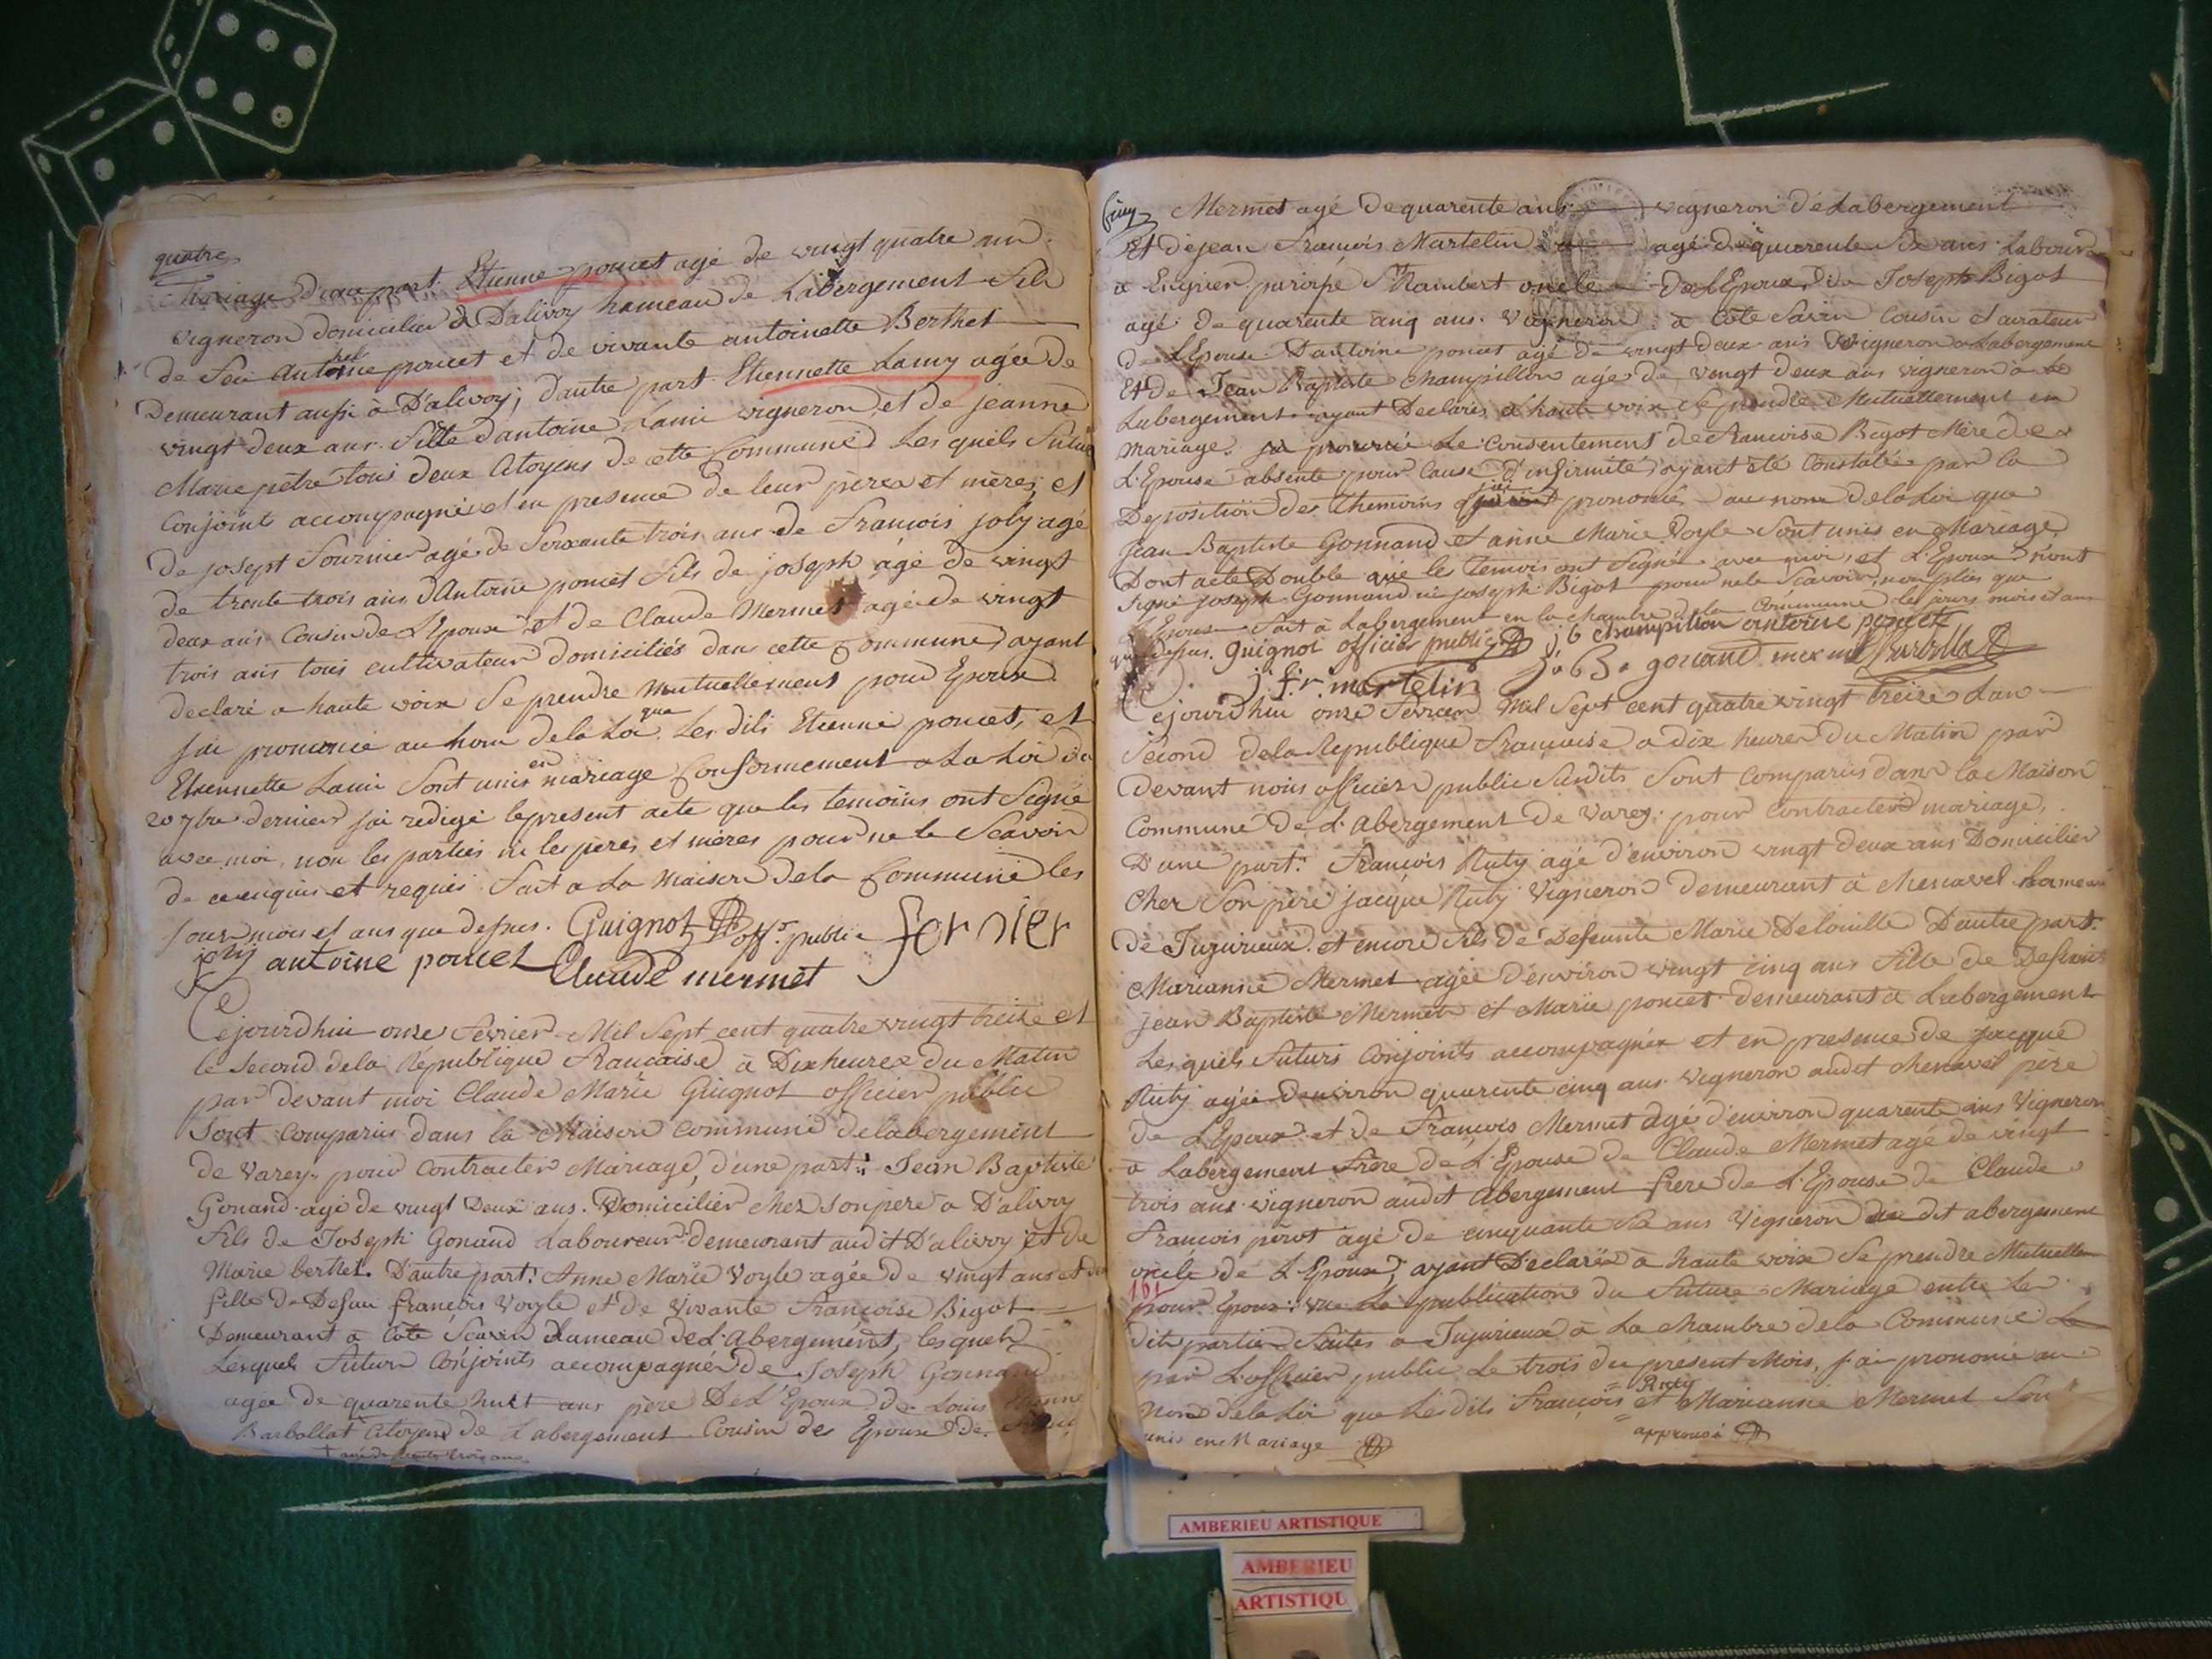 quatre
Mariage d'une part Etienne poncet agé de vingt quatre ans
vigneron domicilié à Dalivoy hameau de Labergement fils
de feu antoine poncet et de vivante antoinette Berthet
Demeurant aussi à D'alivoy; dautre part Etiennette Lamy agée de
vingt deux ans fille d'antoine Lami vigneron et de jeanne
Marie pètre tous deux Citoyens de cette Commune Les quels futurs
Conjoint accompagnés et en presence de leur pères et mères, et
de josept fournier agé de soixante trois ans de françois joly agé
de trente trois ans d'Antoine poncet fils de joseph agé de vingt
deux ans Cousin de L'Epoux et de Claude Mermet agé de vingt
trois ans tous cultivateur domiciliés dans cette Commune, ayant
declaré a haute voix se prendre mutuellement pour Epoux
j'ai prononcé au nom de la Loi que Les dits Etienne poncet, et
Etiennette Lami sont unis en mariage Conformement a La Loi du
20 7bre dernier j'ai redigé le present acte que les temoins ont signé
avec moi, non les parties ni les pères et mères pour ne le sçavoir
de ce enquis et requis. fait a La maison de la Commune les
jour mois et ans que dessus. Guignot off.r public fornier
joly antoine poncet Claude mermet
Cejourdhui onze fevrier Mil sept cent quatre vingt treize et
le second de la République française à Dix heures du Matin
par devant moi Claude Marie Guignot officier public
sont comparus dans la Maison commune de labergement
de Varey pour contracter Mariage, d'une part: Jean Baptiste
Gonand agé de vingt Deux ans. Domicilier chez son père à D'alivoy
fils de Joseph Gonand Laboureur demeurant audit D'alivoy et de
Marie berthet. D'autre part: Anne Marie Voyle agée de vingt ans et
fille de Defun françois Voyle et de vivante françoise Bigot
Demeurant à Côte Savin Hameau de L'Abergement, les quels
Lesquels futurs Conjoints accompagnés de Joseph Gonnand
agée de quarente huit ans père De L'Epoux de Louis
Barbollat Citoyens de Labergement Cousin des Epoux de
agé de trente trois ans
Cinq
Mermet agé de quarente ans vigneron de Labergement
Et de jean françois Martelin agé de quarente six ans Labour
a Lignier paroisse St Rambert oncle De L'Epoux, de Joseph Bigot
agé de quarente cinq ans Vigneron à Côte Savin Cousin et curateur
de L'Epouse D'antoine poncet agé de vingt deux ans Vigneron a Labergement
Et de Jean Baptiste champillon agé de vingt deux ans vigneron à
Labergement ayant Declarés à haute voix se prendre Mutuellement en
mariage. Le Consentement de françoise Bigot Mère de
L'Epouse absente pour Cause d'infirmité, ayant été Constatée par la
Deposition des themoins j'ai prononcé au nom de la Loi que
Jean Baptiste Gonnand et anne Marie Voyle sont unis en Mariage
Dont acte Double que les temoins ont signé avec moi, et L'Epoux n'ont
signé joseph Gonnand ni joseph Bigot pour ne le sçavoir, non plus que
L'Epouse fait à Labergement en la chambre de la Commune les jours mois et an
que dessus. Guignot officier public j b champillon antoine poncet
j. fr. martelin j. b. gonand mermet Barbollat
Cejourdhui onze fevrier Mil sept cent quatre vingt treize Lan
second de la Republique françoise a dix heures du Matin par
devant nous officier public susdits sont comparus dans la Maison
Commune de L'abergement de Varey pour contracter mariage,
D'une part: françois Ruty agé d'environ vingt deux ans Domicilier
chez son père jacque Ruty Vigneron demeurant à chenavel hameau
de Jujurieux. et encore fils de Defeunte Marie Delouille D'autre part.
Marianne Mermet agée d'environ vingt cinq ans fille de Defeunt
jean Baptiste Mermet et Marie poncet demeurant à Labergement
Les quels futurs Conjoints accompagnés et en presence de jacque
Ruty agée d'environ quarente cinq ans vigneron audit chenavel père
de L'Epoux et de françois Mermet agé d'environ quarente ans Vigneron
à Labergement frère de L'Epouse de Claude Mermet agé de vingt
trois ans vigneron audit abergement frere de L'Epouse de Claude
françois perot agé de cinquante six ans Vigneron au dit abergement
oncle de L'Epoux, ayant Declaré à haute voix se prendre Mutuellem
101
pour Epoux: vue La publication du future Mariage entre Les
dits parties faites a Jujurieux à La chambre de la Commune
par L'officier public Le trois du present Mois, j'ai prononcé au
nom de la Loi que Les dits françois Ruty et Marianne Mermet son
unis en Mariage approuvé
AMBERIEU ARTISTIQUE
AMBERIEU
ARTISTIQU